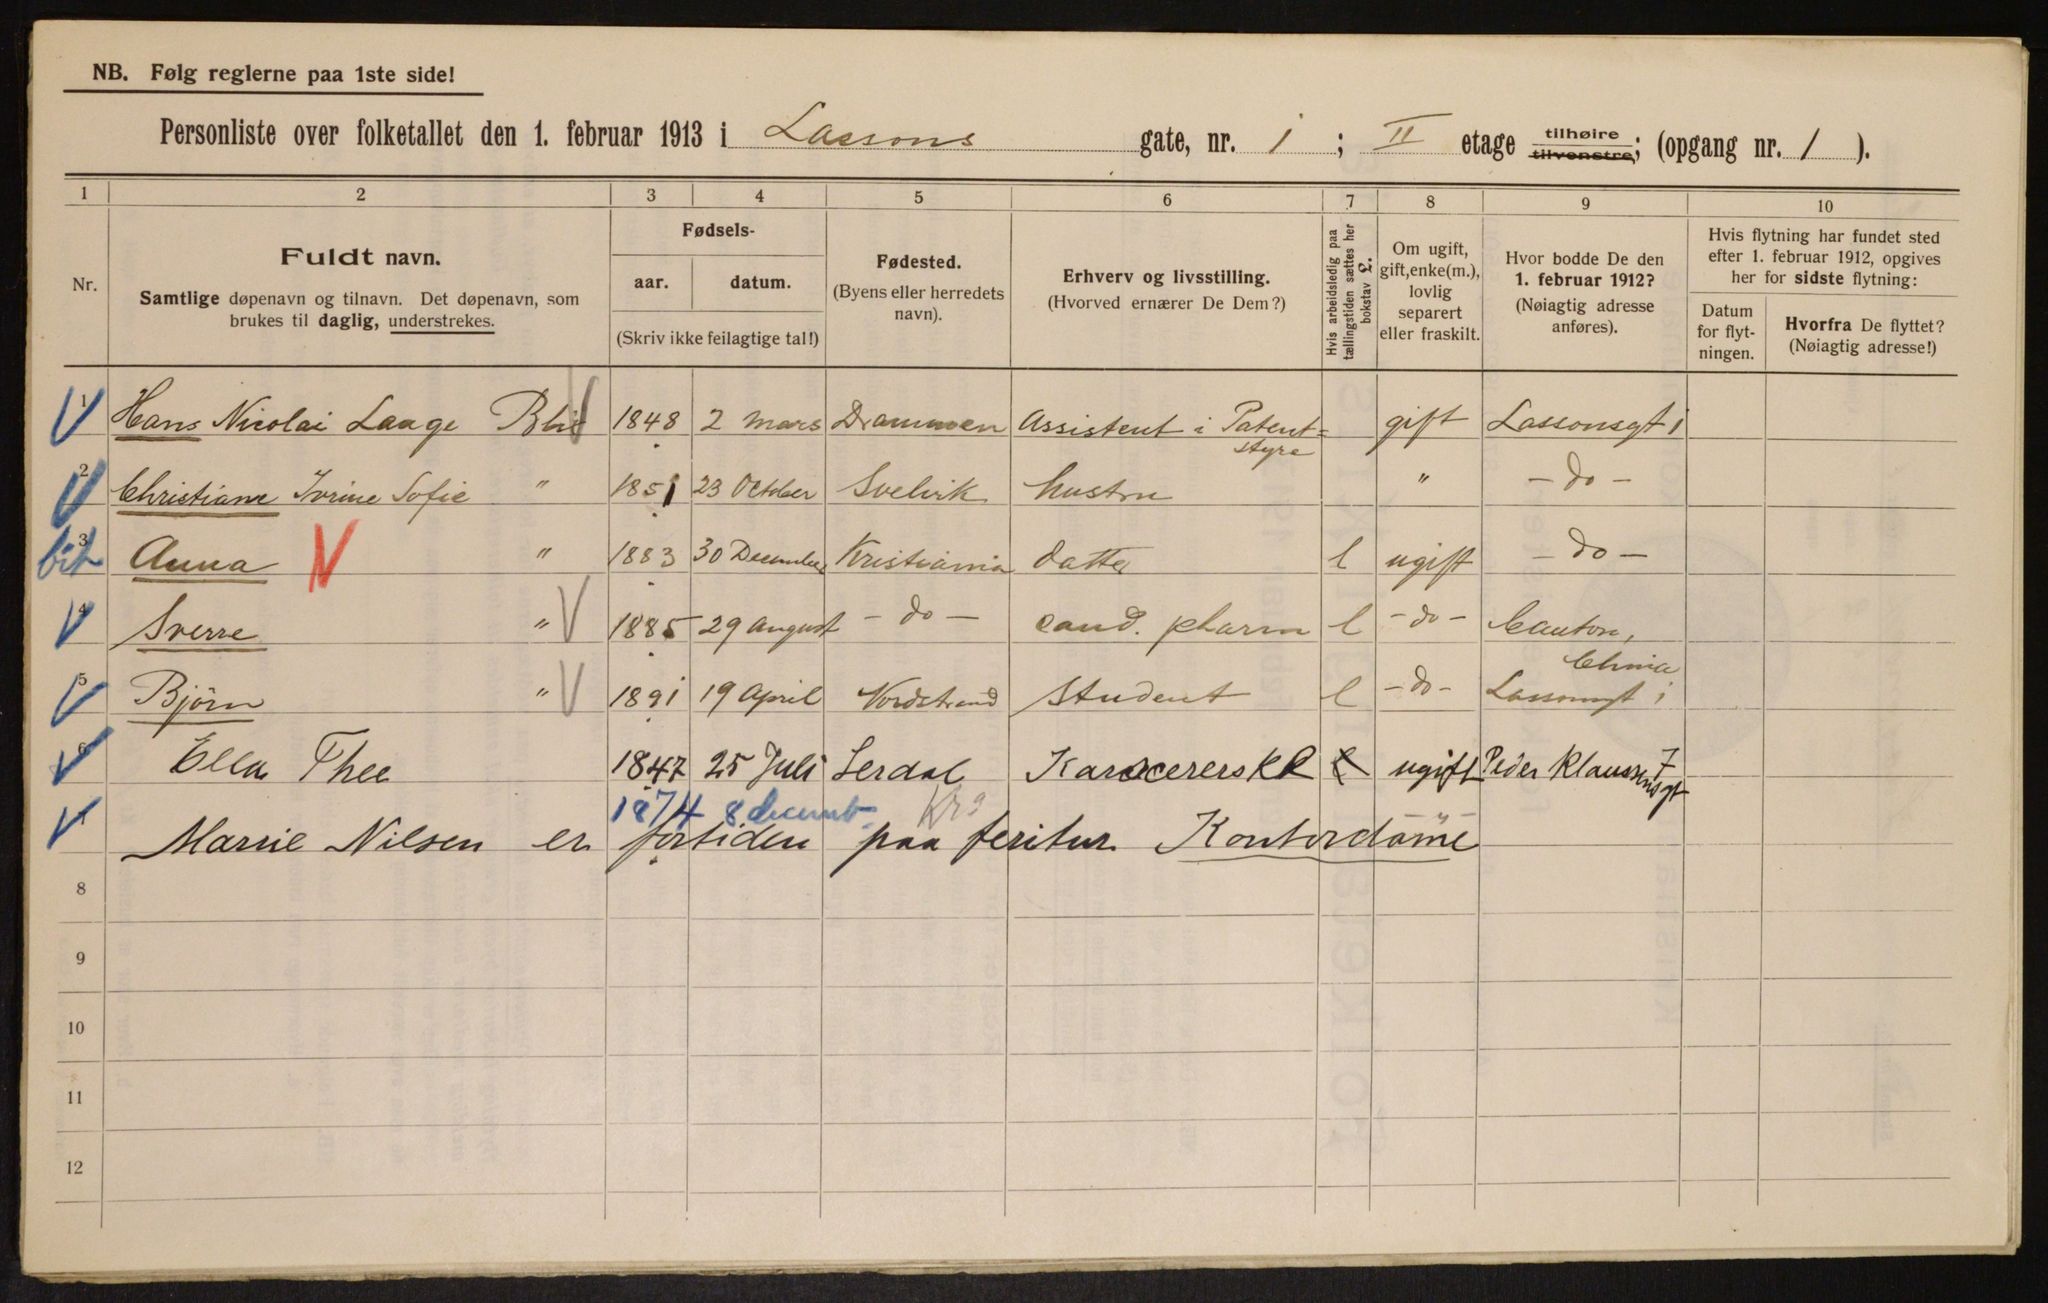 NB. Følg reglerne paa 1ste side!
Personliste over folketallet den 1. februar 1913 i Lassons gate, nr. 1 ; II etage tilhøire tilvenstre; (opgang nr. 1 ).
1 2 3 4 5 6 7 8 9 10
Nr.
Fuldt navn.
Samtlige døpenavn og tilnavn. Det døpenavn, som
brukes til daglig, understrekes.
Fødsels-
aar. datum.
(Skriv ikke feilagtige tal!)
Fødested.
(Byens eller herredets
navn).
Erhverv og livsstilling.
(Hvorved ernærer De Dem?)
Hvis arbeidsledig paa
tællingstiden sættes her
bokstav L.
Om ugift,
gift, enke(m.),
lovlig
separert
eller fraskilt.
Hvor bodde De den
1. februar 1912?
(Nøiagtig adresse
anføres).
Hvis flytning har fundet sted
efter 1. februar 1912, opgives
her for sidste flytning:
Datum
for flyt-
ningen.
Hvorfra De flyttet?
(Nøiagtig adresse!)
1 Hans Nicolai Laage 1848 2 mars Drammen Assistent i Patent=
styre gift Lassonsgt 1
2 Christiane Sofie " 1851 23 October Svelvik hustru " - do -
3 Anna " 1883 30 December Kristiania datter l ugift - do -
4 Sverre " 1885 29 august - do - cand. pharm l - do - Canton,
China
5 Bjørn " 1891 19 April Nordstrand Student l - do - Lassonsgt 1
6 Ella Thee 1847 25 Juli Lerdal l ugift Peder Klaussens gt 7
1874 8 decemb. Kra
Marrie Nilsen er fortiden paa feritur Kontordame
8
9
10
11
12